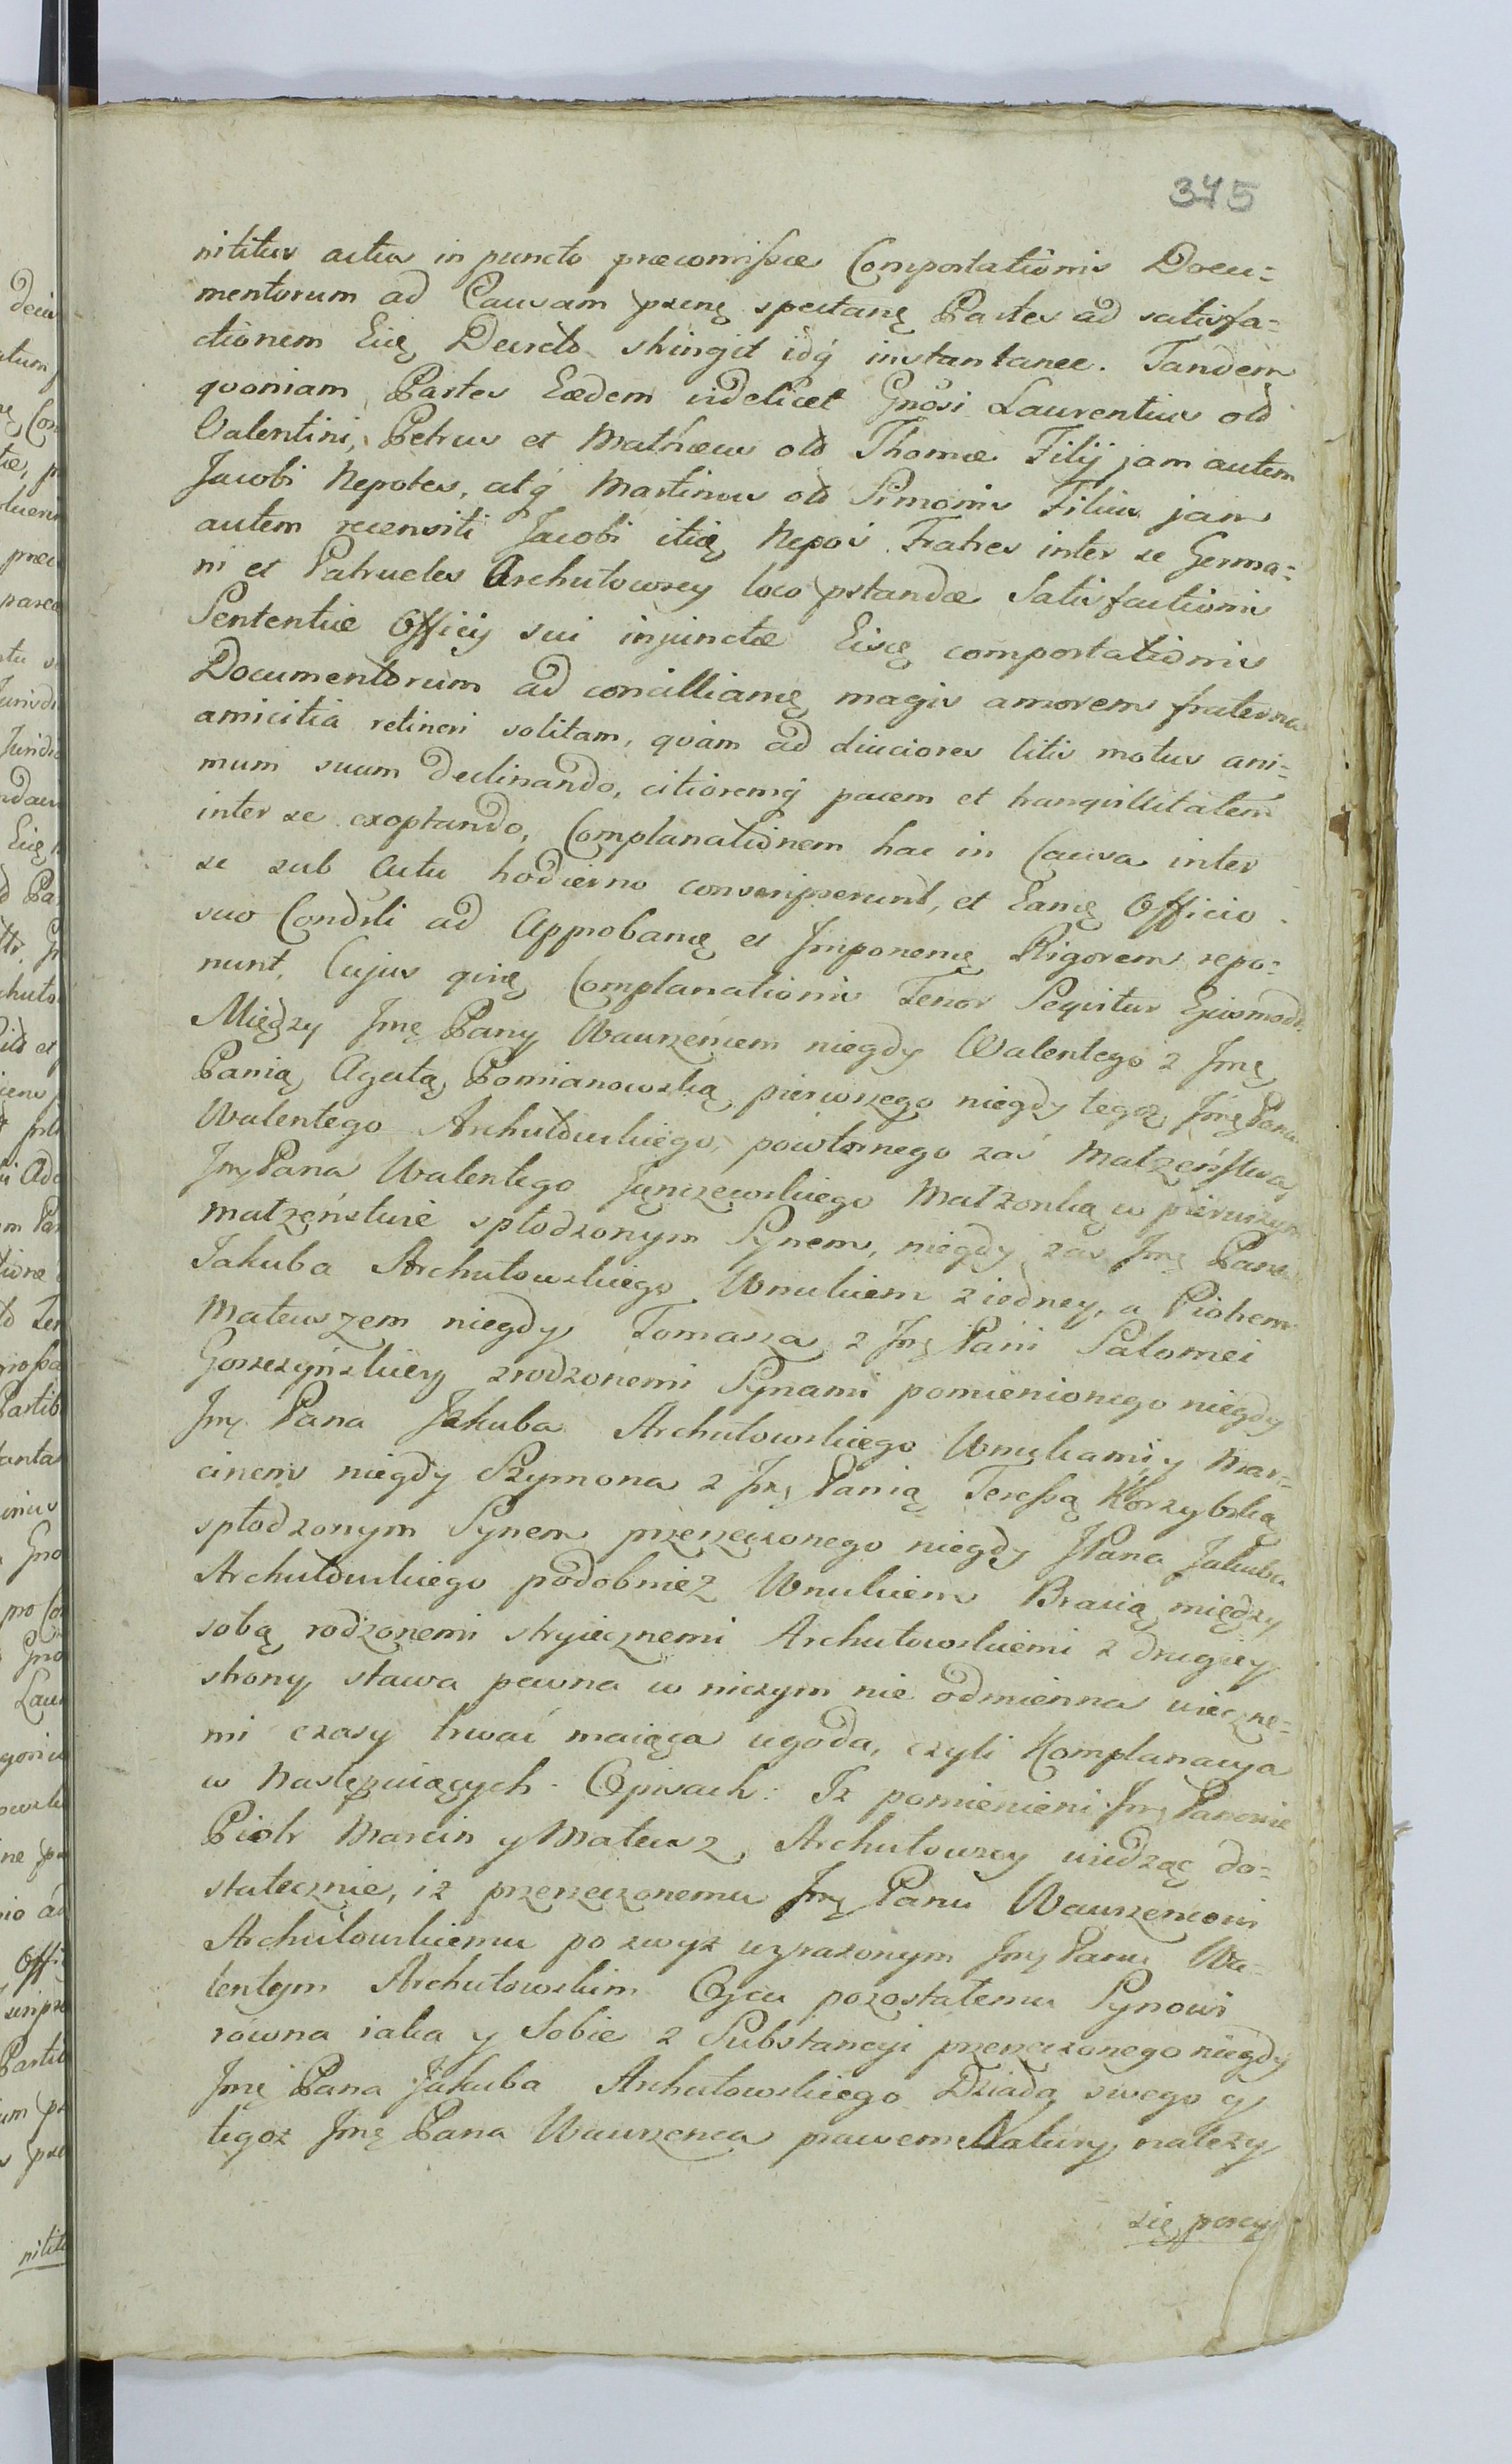 345
nititur actu in puncto præcomissæ Comportationis Docu=
mentorum ad Causam psenę spectanę Partes ad satisfa=
ctionem Eię Decreto stringit idq́ instantanee. Tandem
quoniam Partes Eædem videlicet Gnosi Laurentius old
Valentini, Petrus et Mathæus old Thomæ Filij jam autem
Jacobi Nepotes, atq́ Martinus old Simonis Filius jam
autem recensiti Jacobi itię Nepos Fratres inter se Germa=
ni et Patrueles Archutowscy loco pstandæ Satisfactionis
Sententiæ Officij sui injunctæ Eiscę comportationis
Documentorum ad concillianę magis amorem fraterna
amicitia retineri solitam, quàm ad diuciores litis motus ani=
mum suum declinando, citioremq́ pacem et tranquillitatem
inter se exoptando, Complanationem hac in Causa inter
se sub Actu hodierno conscripserunt, et Eamę Officio
suo Condsti ad Approbanę et Imponenę Rigorem repo=
nunt. Cujus qinę Complanationis Tenor Sequitur Ejusmodi.
Między Jmę Pany Wawrzencem niegdy Walentego z Jmę
Panią Agatą Pomianowską pierwszego niegdy tegoż Jmę Pana
Walentego Archutowskiego, powtornego zaś Małżeństwa
Jmę Pana Walentego Jęnczewskiego Małżonką w pierwszym
małżeństwie spłodzonym Synem, niegdy zas Jmę Pana
Jakuba Archutowskiego Wnukiem z iedney, a Piotrem
Mateuszem niegdy Tomasza z Jmę Pani Salomei
Gorszyńskiey zrodzonemi Synami pomienionego niegdy
Jmę Pana Jakuba Archutowskiego Wnukami y Mar=
cinem niegdy Szymona z Jmę Panią Teressą Korzybską
spłodzonym Synem przerzeczonego niegdy JPana Jakuba
Archutowskiego podobnież Wnukiem Bracią między
sobą rodzonemi stryiecznemi Archutowskiemi z drugiey
strony stawa pewna w niczym nie odmienna wieczne=
mi czasy trwać maiąca ugoda, czyli Komplanacya
w Następuiących Opisach: Iż pomienieni Jmę Panowie
Piotr Marcin y Mateusz Archutowscy wiedząc do=
statecznie, iż przerzeczonemu Jmę Panu Wawrzencowi
Archutowskiemu po zwyż wyrażonym Jmę Panu Wa=
lentym Archutowskim Oycu pozostałemu Synowi
równa iaka y Sobie z Substancyi przerzeczonego niegdy
Jmę Pana Jakuba Archutowskiego Dziada swego y
tegoż Jmę Pana Wawrzenca prawem Natury należy
się porcya